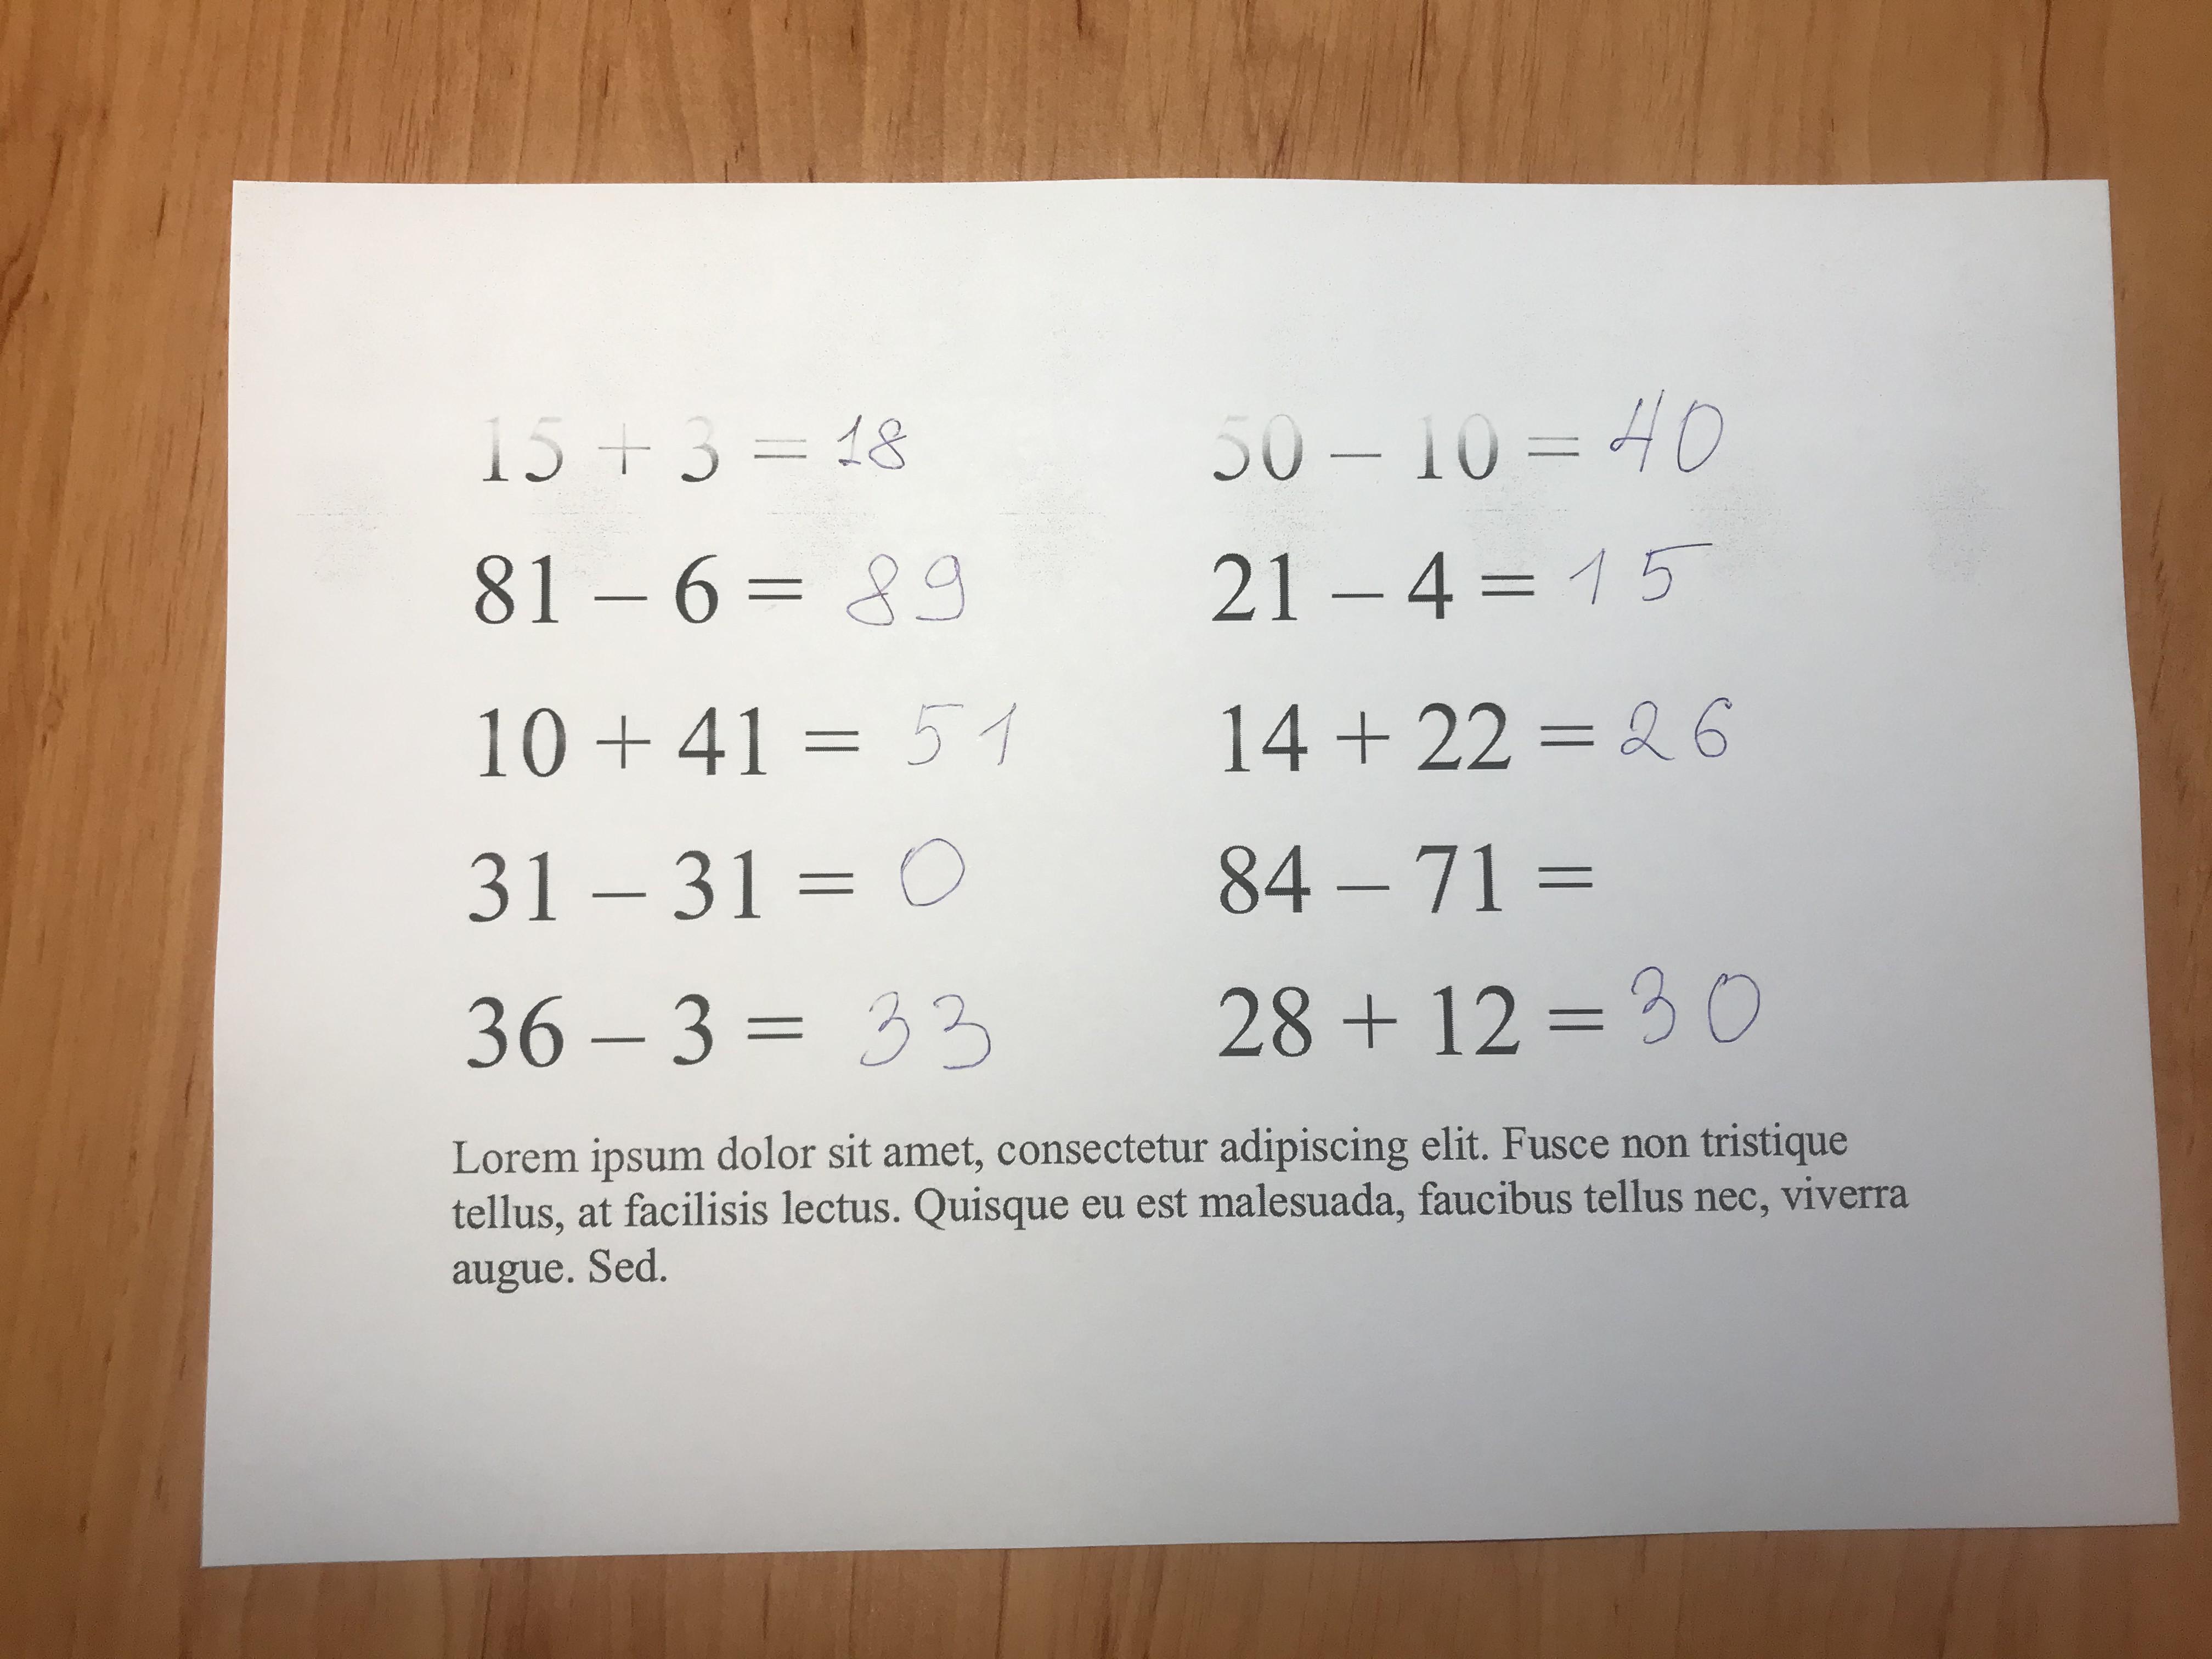 15 + 3 = 18 50 – 10 = 40
81 – 6 = 89 21 – 4 = 15
10 + 41 = 51 14 + 22 = 26
31 – 31 = 0 84 – 71 =
36 – 3 = 33 28 + 12 = 30
Lorem ipsum dolor sit amet, consectetur adipiscing elit. Fusce non tristique
tellus, at facilisis lectus. Quisque eu est malesuada, faucibus tellus nec, viverra
augue. Sed.